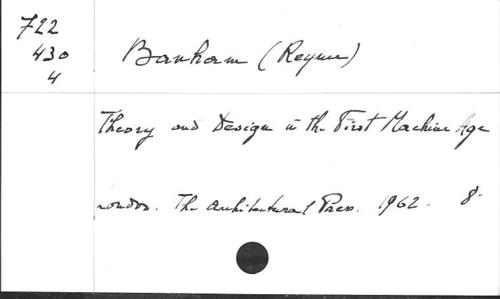 722
430
4
Banham (Reyner)
Theory and Design in the First Machine Age
London. The Architectural Press. 1962. 8-